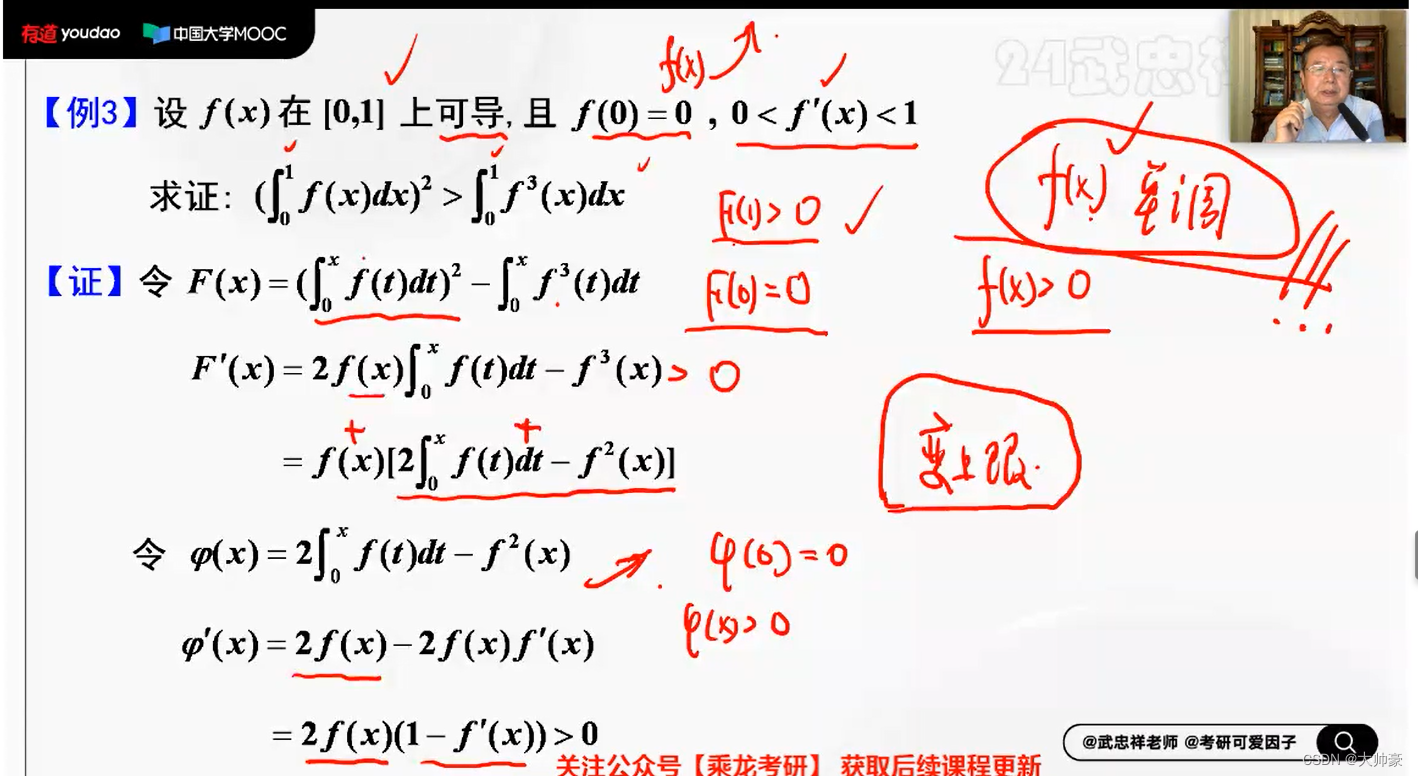 有道 youdao 中国大学MOOC
24武忠祥
f(x)
【例3】设 f(x) 在 [0,1] 上可导, 且 f(0) = 0 , 0 < f′(x) < 1
f(x) 单调
求证: (∫₀¹ f(x)dx)² > ∫₀¹ f³(x)dx
F(1) > 0
【证】令 F(x) = (∫₀ˣ f(t)dt)² − ∫₀ˣ f³(t)dt
F(0) = 0
f(x) > 0
F′(x) = 2f(x)∫₀ˣ f(t)dt − f³(x) > 0
+ +
= f(x)[2∫₀ˣ f(t)dt − f²(x)]
变上限
令 φ(x) = 2∫₀ˣ f(t)dt − f²(x)
φ(0) = 0
φ(x) > 0
φ′(x) = 2f(x) − 2f(x)f′(x)
= 2f(x)(1 − f′(x)) > 0
@武忠祥老师 @考研可爱因子
关注公众号【乘龙考研】 获取后续课程更新
CSDN @大帅豪